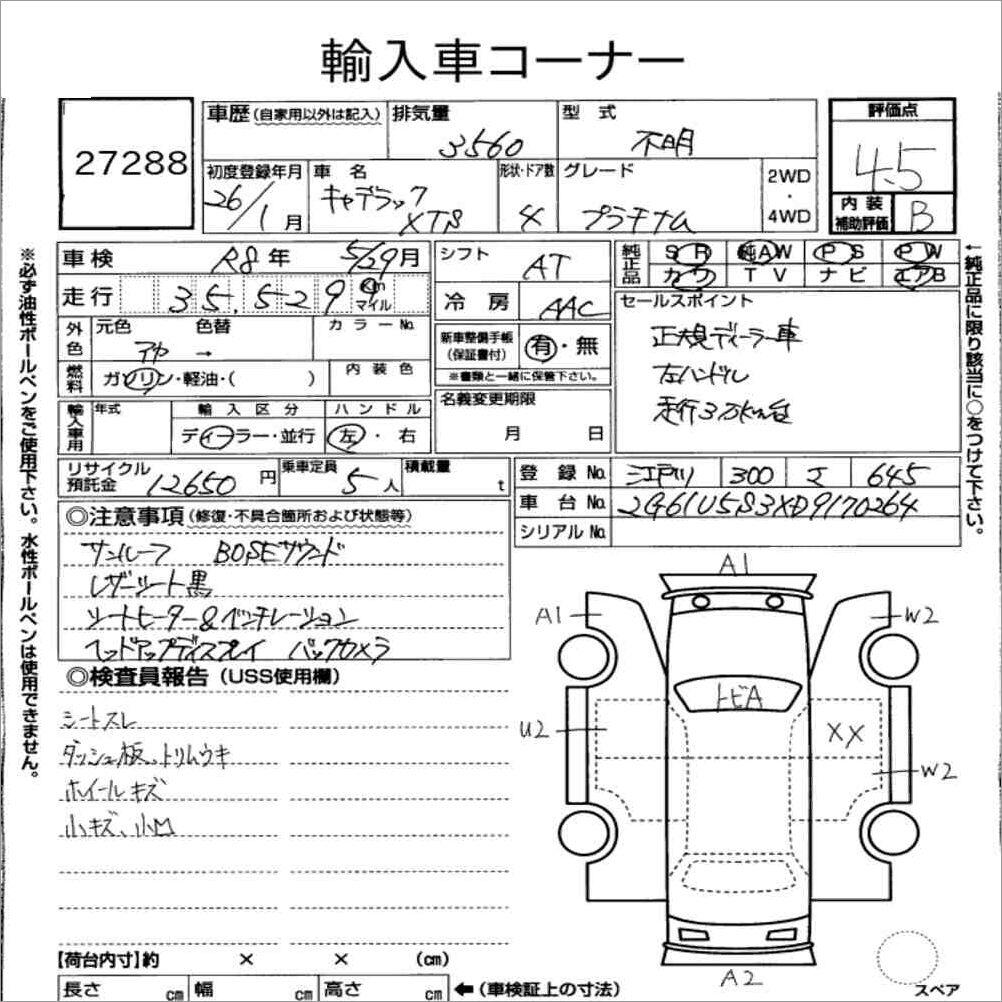 輸入車コーナー
27288
車歴(自家用以外は記入)
排気量
3560
型式
不明
評価点
4.5
初度登録年月
26/1月
車名
キャデラック
XTS
形状・ドア数
4
グレード
プラチナム
2WD
・
4WD
内装
補助評価
B
※必ず油性ボールペンをご使用下さい。水性ボールペンは使用できません。
車検 R8年 5/29月
シフト
AT
純正品
SR
純AW
PS
PW
カワ
TV
ナビ
エアB
←純正品に限り該当に○をつけて下さい。
走行 35,529 Km マイル
冷房
AAC
セールスポイント
正規ディーラー車
左ハンドル
走行3万km台
外色
元色
色替
→
カラーNo.
新車整備手帳
(保証書付)
有・無
※書類と一緒に保管下さい。
燃料
ガソリン・軽油・( )
内装色
輸入車用
年式
輸入区分
ディーラー・並行
ハンドル
左・右
名義変更期限
月 日
リサイクル
預託金
12650円
乗車定員
5人
積載量
t
登録No.
江戸川
300
645
車台No.
2G61U5S3XD9170264
シリアルNo.
◎注意事項(修復・不具合箇所および状態等)
サンルーフ BOSEサウンド
レザーシート黒
シートヒーター&ベンチレーション
ヘッドアップディスプレイ バックカメラ
◎検査員報告(USS使用欄)
シートスレ
ダッシュ板、トリムウキ
ホイールキズ
小キズ、小凹
A1
A1
W2
トビA
U2
XX
W2
A2
スペア
【荷台内寸】約 × × (cm)
長さ cm
幅 cm
高さ cm
←(車検証上の寸法)